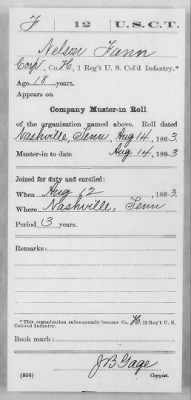 F 12 U.S.C.T.
Nelson Fann
Corp, Co. H, 1 Reg't U. S. Col'd Infantry.*
Age 18 years.
Appears on
Company Muster-in Roll
of the organization named above. Roll dated
Nashville, Tenn, Aug 14, 1863
Muster-in to date Aug 14, 1863
Joined for duty and enrolled:
When Aug 12 1863
Where Nashville, Tenn
Period 3 years.
Remarks:
*This organization subsequently became Co. H, 12 Reg't U. S.
Colored Infantry.
Book mark:
J B Gage
(356) Copyist.